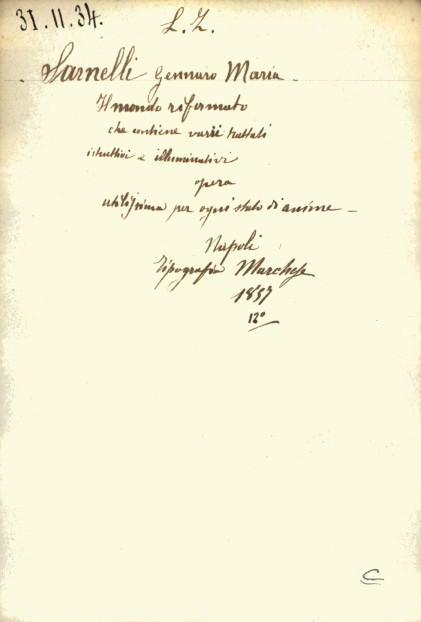 31.11.34.
L. Z.
Sarnelli Gennaro Maria
Il mondo riformato
che contiene varii trattati
istruttivi e illuminativi
opera
utilissima per ogni stato di anime
Napoli
Tipografia Marchese
1857
12°
C